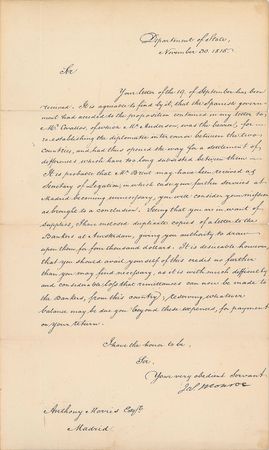 Department of State,
November 30. 1815.
Sir
Your letter of the 19. of September has been
received. It is agreeable to find by it, that the Spanish govern-
ment had acceded to the proposition contained in my letter to,
Mr. Cevallos, of which Mr. Anderson, was the bearer, for
re-establishing the diplomatic intercourse between the two
Countries, and had thus opened the way for a settlement of,
differences which have too long subsisted between them.
It is probable that Mr. Brent may have been received as
Secretary of Legation; in which case your further services at
Madrid becoming unnecessary, you will consider your mission
as brought to a conclusion. Seeing that you are in want of
supplies, I have enclosed duplicate copies of a letter to the
Bankers at Amsterdam, giving you authority to draw
upon them for four thousand dollars. It is desirable however,
that you should avail yourself of this credit no further
than you may find necessary, as it is with much difficulty
and considerable loss that remittances can now be made to
the Bankers, from this country; reserving whatever
balance may be due you beyond these expenses, for payment
on your return.
I have the honor to be,
Sir,
Your very obedient Servant
Jas Monroe
Anthony Morris Esqr.
Madrid.